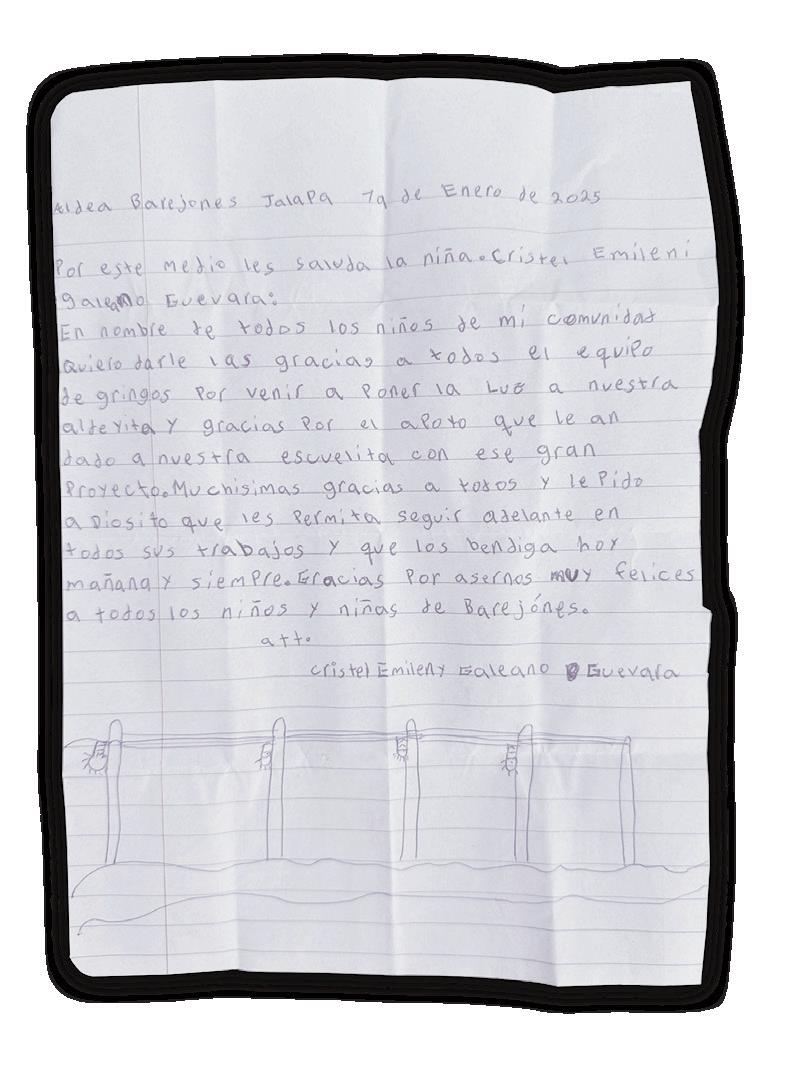 Aldea Barejones Jalapa de Enero de 2025
Por este medio les saluda la niña. Cristel Emileni
galeano Guevara:
En nombre de todos los niños de mi comunidad
quiero darle las gracias a todos el equipo
de gringos por venir a poner la Luz a nuestra
aldeyita y gracias por el apoyo que le an
dado a nuestra escuelita con ese gran
Proyecto. Muchisimas gracias a todos y le pido
a Diosito que les Permita seguir adelante en
todos sus trabajos y que los bendiga hoy
mañana y siempre. Gracias por asernos muy felices
a todos los niños y niñas de Barejónes.
att.
Cristel Emileny Galeano Guevara